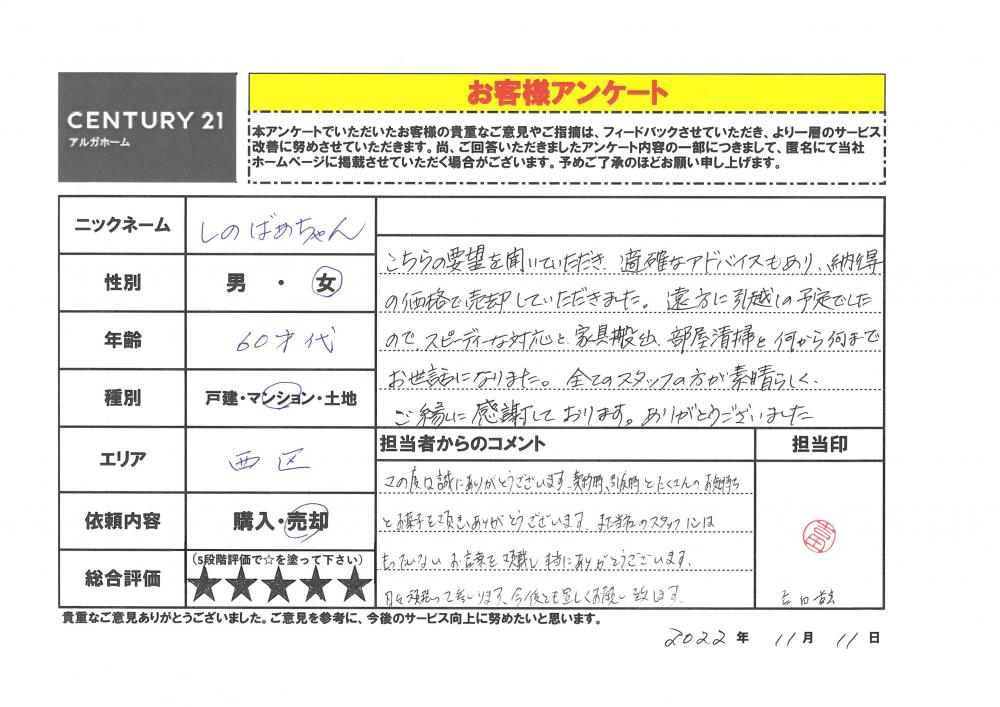 CENTURY 21
アルガホーム
お客様アンケート
本アンケートでいただいたお客様の貴重なご意見やご指摘は、フィードバックさせていただき、より一層のサービス
改善に努めさせていただきます。尚、ご回答いただきましたアンケート内容の一部につきまして、匿名にて当社
ホームページに掲載させていただく場合がございます。予めご了承のほどお願い申し上げます。
ニックネーム しのばぁちゃん
性別 男 ・ 女
年齢 60才代
種別 戸建・マンション・土地
エリア 西区
依頼内容 購入・売却
総合評価 (5段階評価で☆を塗って下さい)
★★★★★
こちらの要望を聞いていただき、適確なアドバイスもあり、納得
の価格で売却していただきました。遠方に引越しの予定でした
ので、スピーディーな対応と、家具搬出、部屋清掃と何から何まで
お世話になりました。全てのスタッフの方が素晴らしく、
ご縁に感謝しております。ありがとうございました
担当者からのコメント
担当印
この度は誠にありがとうございます。契約時、引渡時とたくさんのお気持ち
とお菓子を頂き、ありがとうございます。また当社のスタッフには
もったいないお言葉を頂戴し、特にありがとうございます。
日々頑張って参ります、今後とも宜しくお願い致します。
吉田
貴重なご意見ありがとうございました。ご意見を参考に、今後のサービス向上に努めたいと思います。
2022 年 11 月 11 日